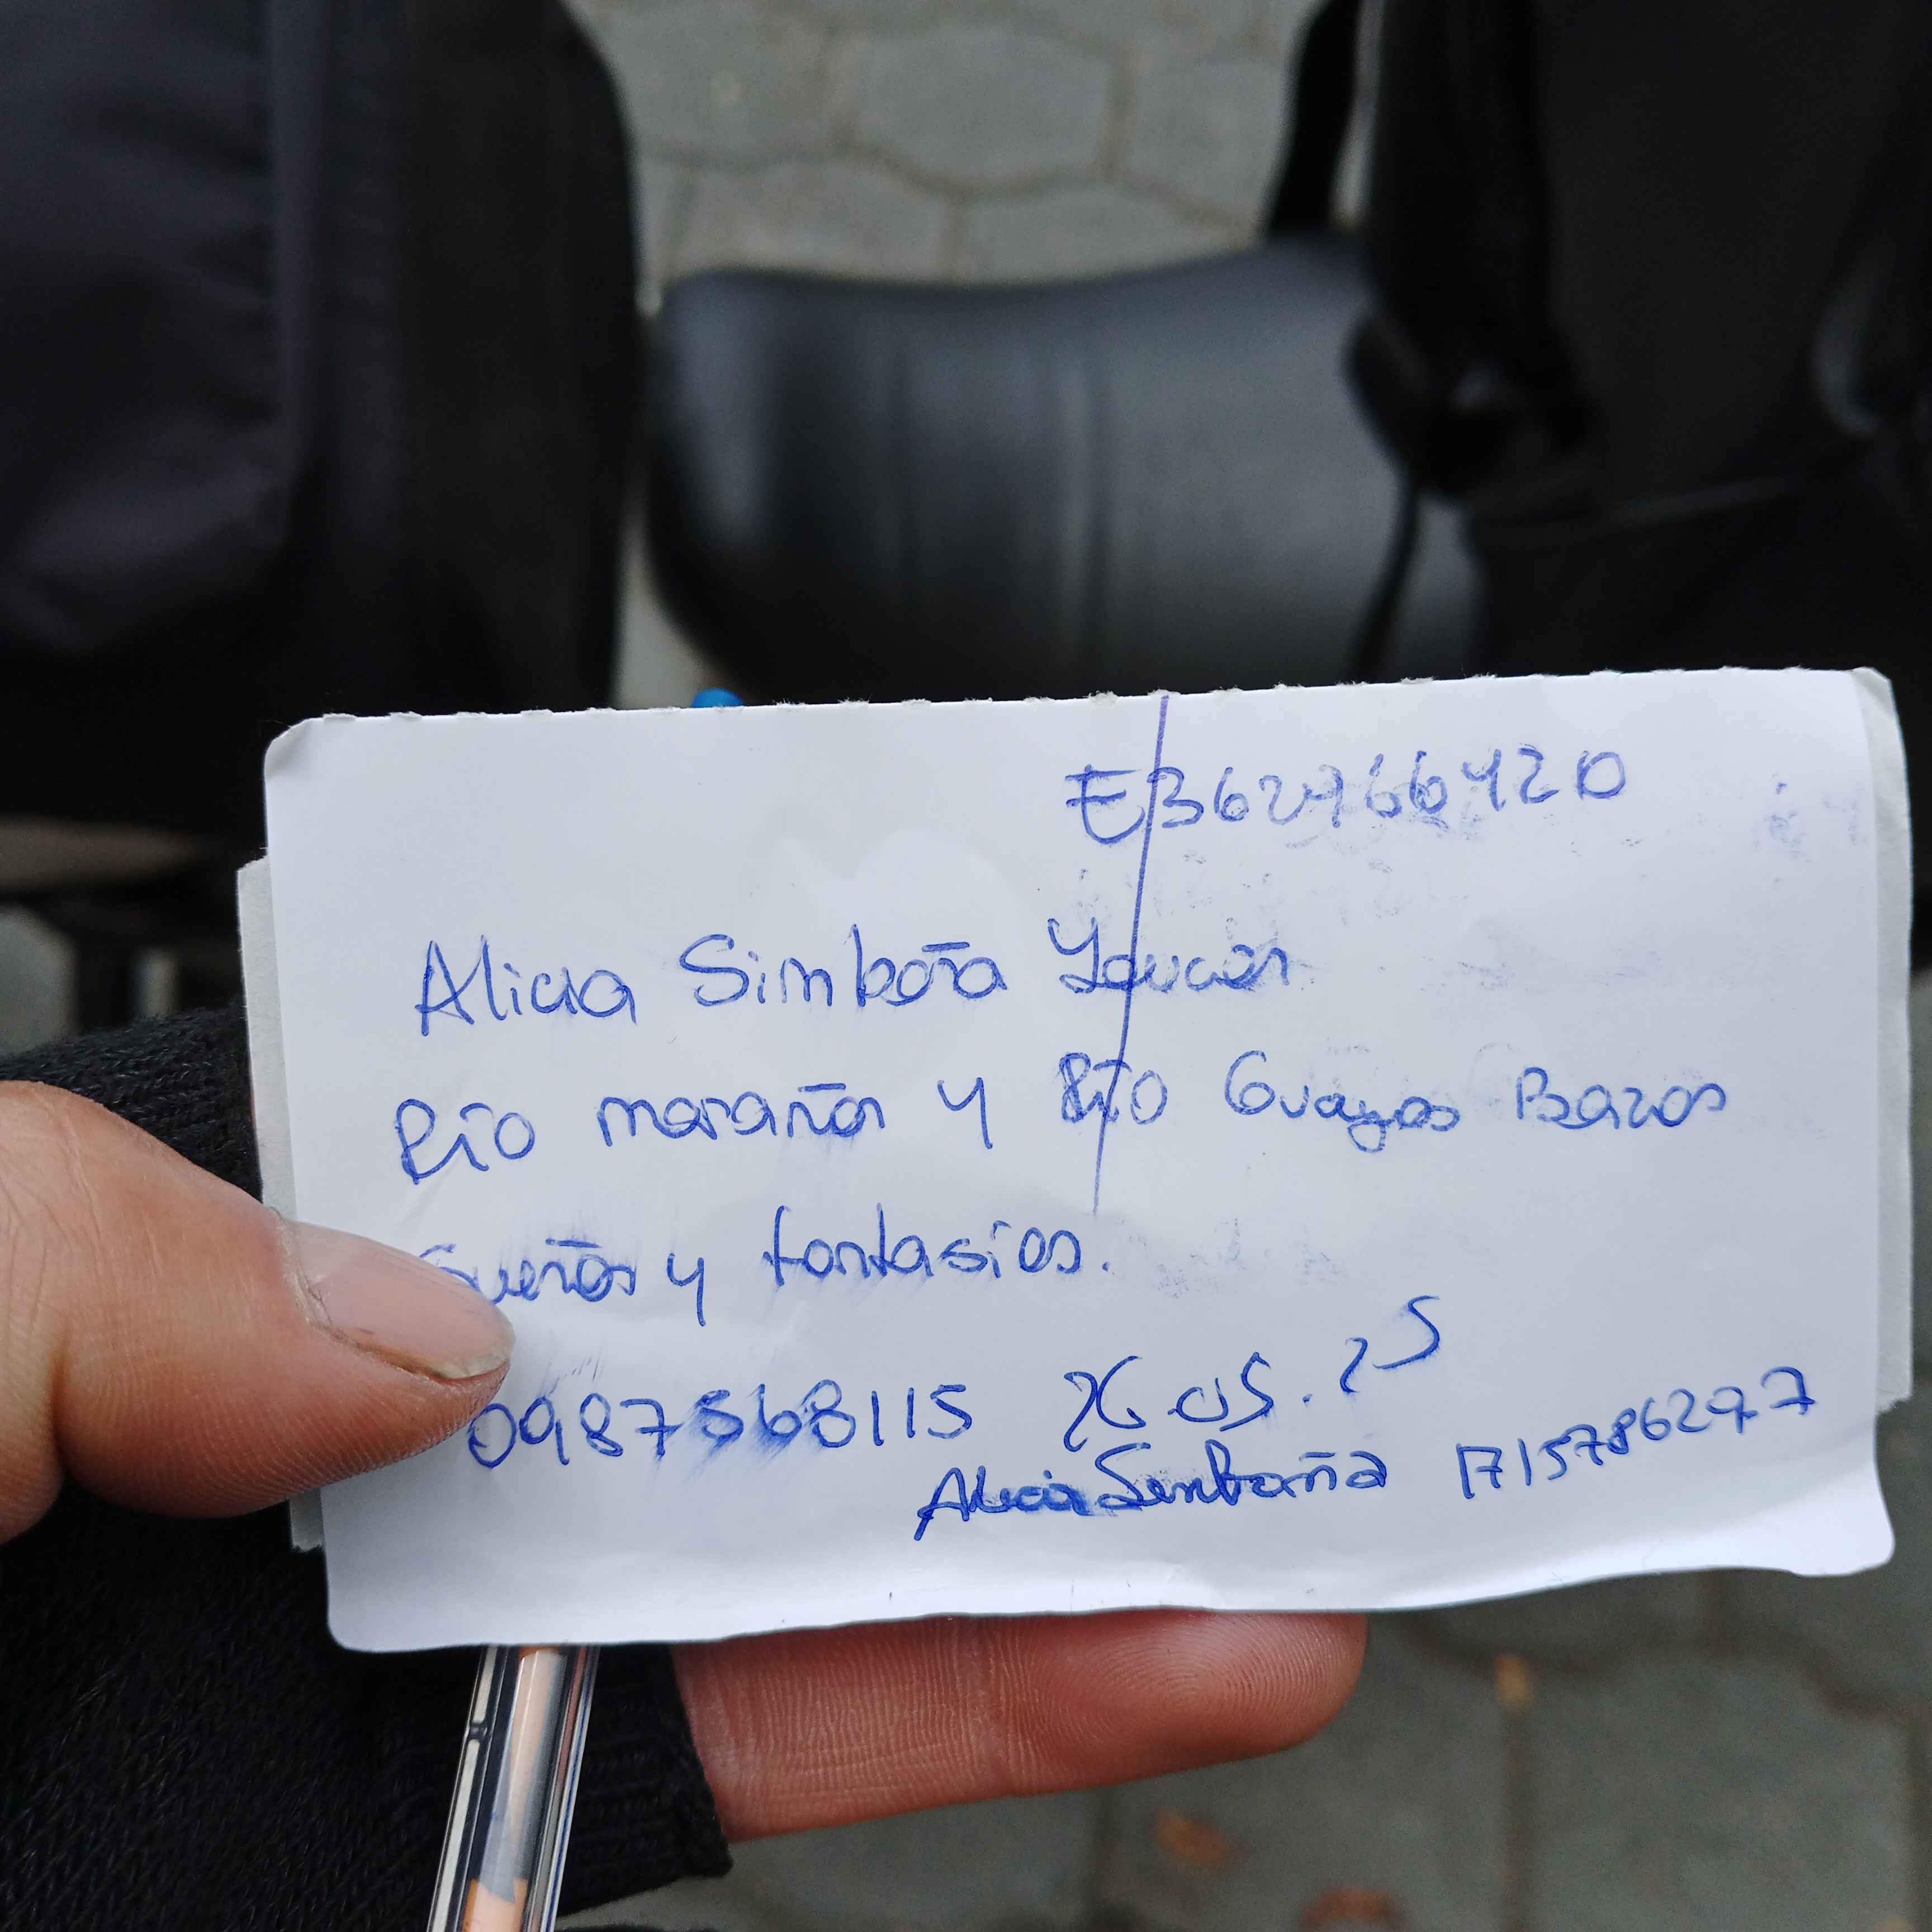 E362766420
Alicia Simbaña
Río marañon y Río Guayas Bazar
Sueños y fantasias.
0987568115 26.05.25
Alicia Simbaña 1715786297